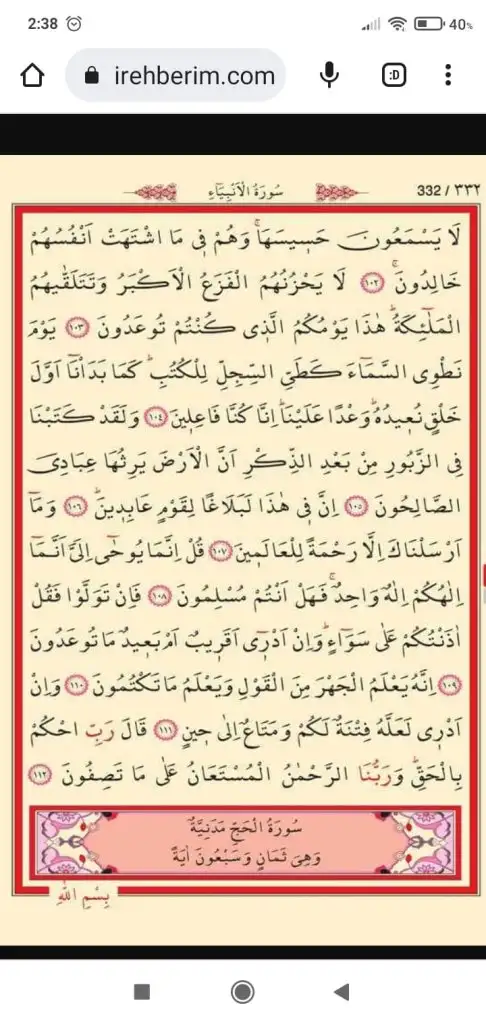 2:38
40%
irehberim.com
:D
سُورَةُ الْاَنْبِيَٓاءِ
332 / ٣٣٢
لَا يَسْمَعُونَ حَسٖيسَهَاۚ وَهُمْ فٖي مَا اشْتَهَتْ اَنْفُسُهُمْ
خَالِدُونَۚ ﴿١٠٢﴾ لَا يَحْزُنُهُمُ الْفَزَعُ الْاَكْبَرُ وَتَتَلَقّٰيهُمُ
الْمَلٰٓئِكَةُۜ هٰذَا يَوْمُكُمُ الَّذٖي كُنْتُمْ تُوعَدُونَ ﴿١٠٣﴾ يَوْمَ
نَطْوِي السَّمَٓاءَ كَطَيِّ السِّجِلِّ لِلْكُتُبِۜ كَمَا بَدَأْنَٓا اَوَّلَ
خَلْقٍ نُعٖيدُهُۜ وَعْدًا عَلَيْنَاۜ اِنَّا كُنَّا فَاعِلٖينَ ﴿١٠٤﴾ وَلَقَدْ كَتَبْنَا
فِي الزَّبُورِ مِنْ بَعْدِ الذِّكْرِ اَنَّ الْاَرْضَ يَرِثُهَا عِبَادِيَ
الصَّالِحُونَ ﴿١٠٥﴾ اِنَّ فٖي هٰذَا لَبَلَاغًا لِقَوْمٍ عَابِدٖينَۜ ﴿١٠٦﴾ وَمَٓا
اَرْسَلْنَاكَ اِلَّا رَحْمَةً لِلْعَالَمٖينَ ﴿١٠٧﴾ قُلْ اِنَّمَا يُوحٰٓى اِلَيَّ اَنَّمَٓا
اِلٰهُكُمْ اِلٰهٌ وَاحِدٌۚ فَهَلْ اَنْتُمْ مُسْلِمُونَ ﴿١٠٨﴾ فَاِنْ تَوَلَّوْا فَقُلْ
اٰذَنْتُكُمْ عَلٰى سَوَٓاءٍۜ وَاِنْ اَدْرٖٓي اَقَرٖيبٌ اَمْ بَعٖيدٌ مَا تُوعَدُونَ
﴿١٠٩﴾ اِنَّهُ يَعْلَمُ الْجَهْرَ مِنَ الْقَوْلِ وَيَعْلَمُ مَا تَكْتُمُونَ ﴿١١٠﴾ وَاِنْ
اَدْرٖي لَعَلَّهُ فِتْنَةٌ لَكُمْ وَمَتَاعٌ اِلٰى حٖينٍ ﴿١١١﴾ قَالَ رَبِّ احْكُمْ
بِالْحَقِّۜ وَرَبُّنَا الرَّحْمٰنُ الْمُسْتَعَانُ عَلٰى مَا تَصِفُونَ ﴿١١٢﴾
سُورَةُ الْحَجِّ مَدَنِيَّةٌ
وَهِيَ ثَمَانٍ وَسَبْعُونَ اٰيَةً
بِسْمِ اللّٰهِ